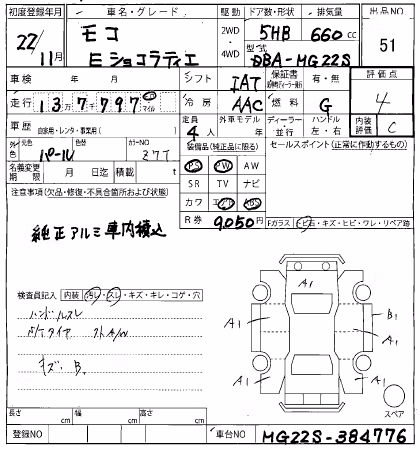 初度登録年月 車名・グレード 駆動 ドア数・形状 排気量 出品NO
22/11月 モコ Eショコラティエ 2WD 4WD 5HB 660cc 51
型式 DBA-MG22S
車検 年 月 シフト IAT 保証書 有・無 評価点
走行 137,797 km マイル 冷房 AAC 燃料 G 4
車歴 自家用・レンタ・事業用( ) 定員 4人 外車モデル年 ディーラー 並行 ハンドル 左・右 内装評価 C
外色 元色 パール 色替 カラーNO Z7T 装備品(純正品に限る) セールスポイント(正常に作動するもの)
名義変更期限 年 月 日 積載 t PS PW AW
注意事項(欠品・修復・不具合箇所および状態) SR TV ナビ
カワ エアB ABS
純正アルミ車内積込 R券 9,050円 Fガラス トビ石・キズ・ヒビ・ワレ・リペア跡
検査員記入 内装 汚レ・スレ・キズ・キレ・コゲ・穴
ハンドルスレ
キズ B1
A1
A1 A1 B1
A1
A1 A1
スペア
長さ cm 幅 cm 高さ cm
登録NO 車台NO MG22S-384776